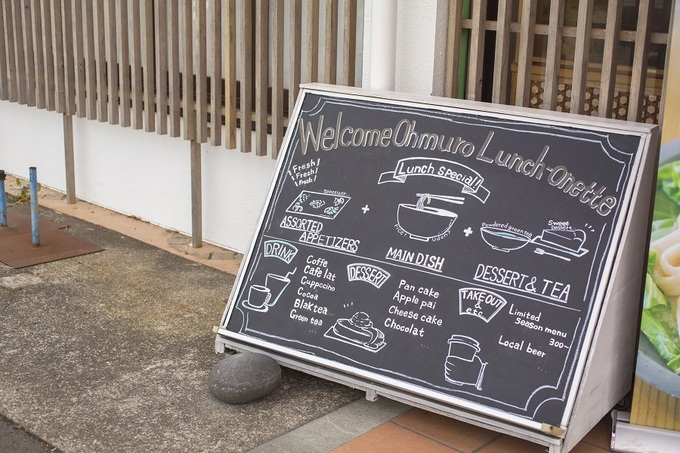 Welcome Ohmuro Lunch-onette
Lunch Special
Fresh!
Fresh!
Fresh!
appetizer
+
+
Powdered green tea
Sweet
Dessert
ASSORTED
APPETIZERS
MAIN DISH
DESSERT & TEA
DRINK
Coffe
Cafe lat
Cuppccino
Cocoa
Blaktea
Green tea
DESSERT
Pan cake
Apple pai
Cheese cake
Chocolat
TAKE OUT
etc.
Limited
Season menu
300~
Local beer